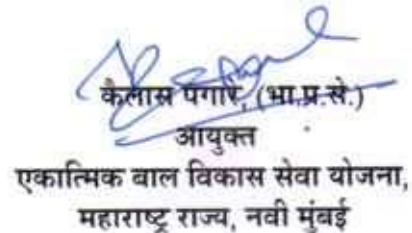 कैलास पगारे, (भा.प्र.से.)
आयुक्त
एकात्मिक बाल विकास सेवा योजना,
महाराष्ट्र राज्य, नवी मुंबई